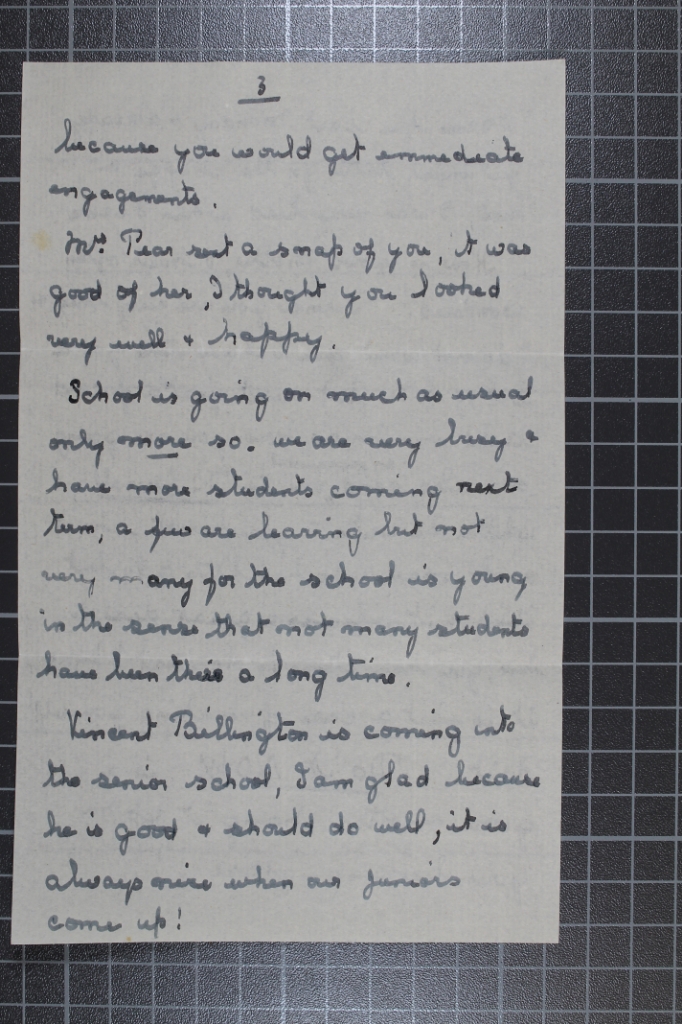 3
because you would get immediate
engagements.
Mrs. Pear sent a snap of you, it was
good of her, I thought you looked
very well & happy.
School is going on much as usual
only more so. we are very busy &
have more students coming next
term, a few are leaving but not
very many for the school is young
in the sense that not many students
have been there a long time.
Vincent Billington is coming into
the senior school, I am glad because
he is good & should do well, it is
always nice when our Juniors
come up!